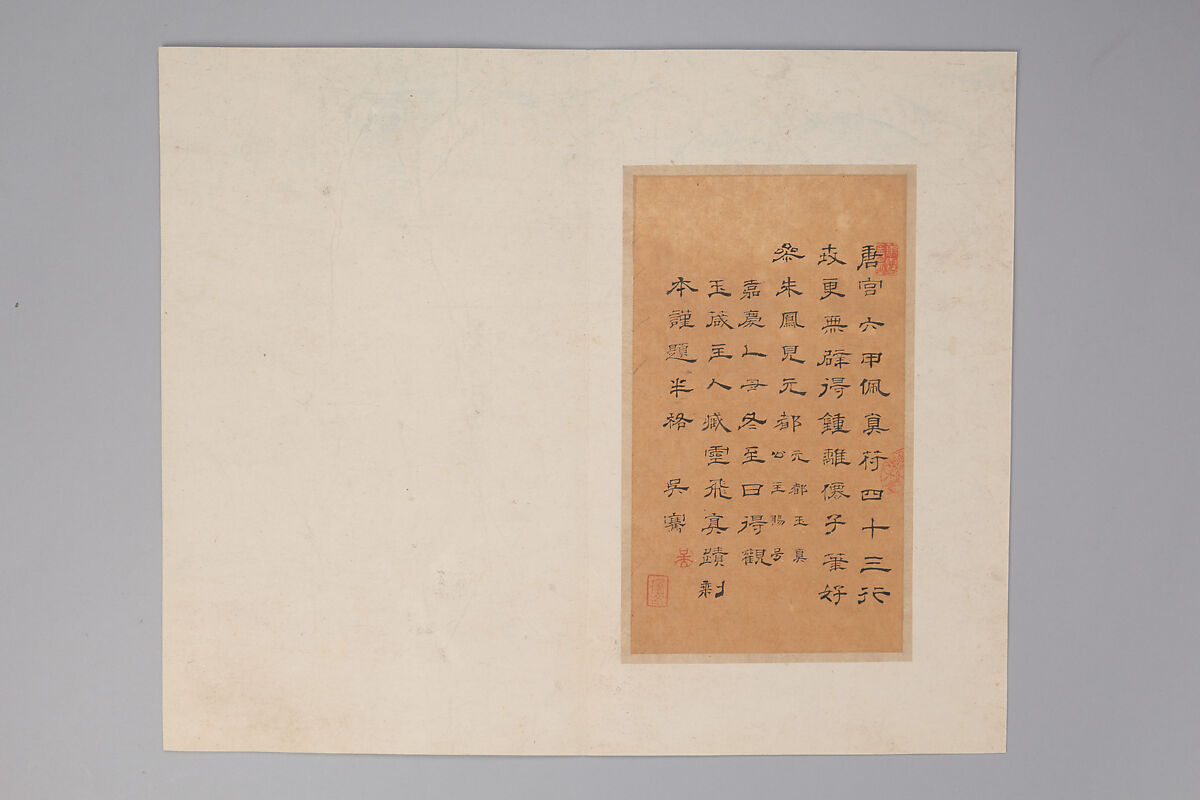 唐宮六甲佩真符四十三行
更無辟得鍾離僊子筆好
參朱鳳見元都
元都玉真
公主賜号
嘉慶乙丑冬至日得觀
玉主人臧靈飛真蹟剩
本謹題半格 吳騫